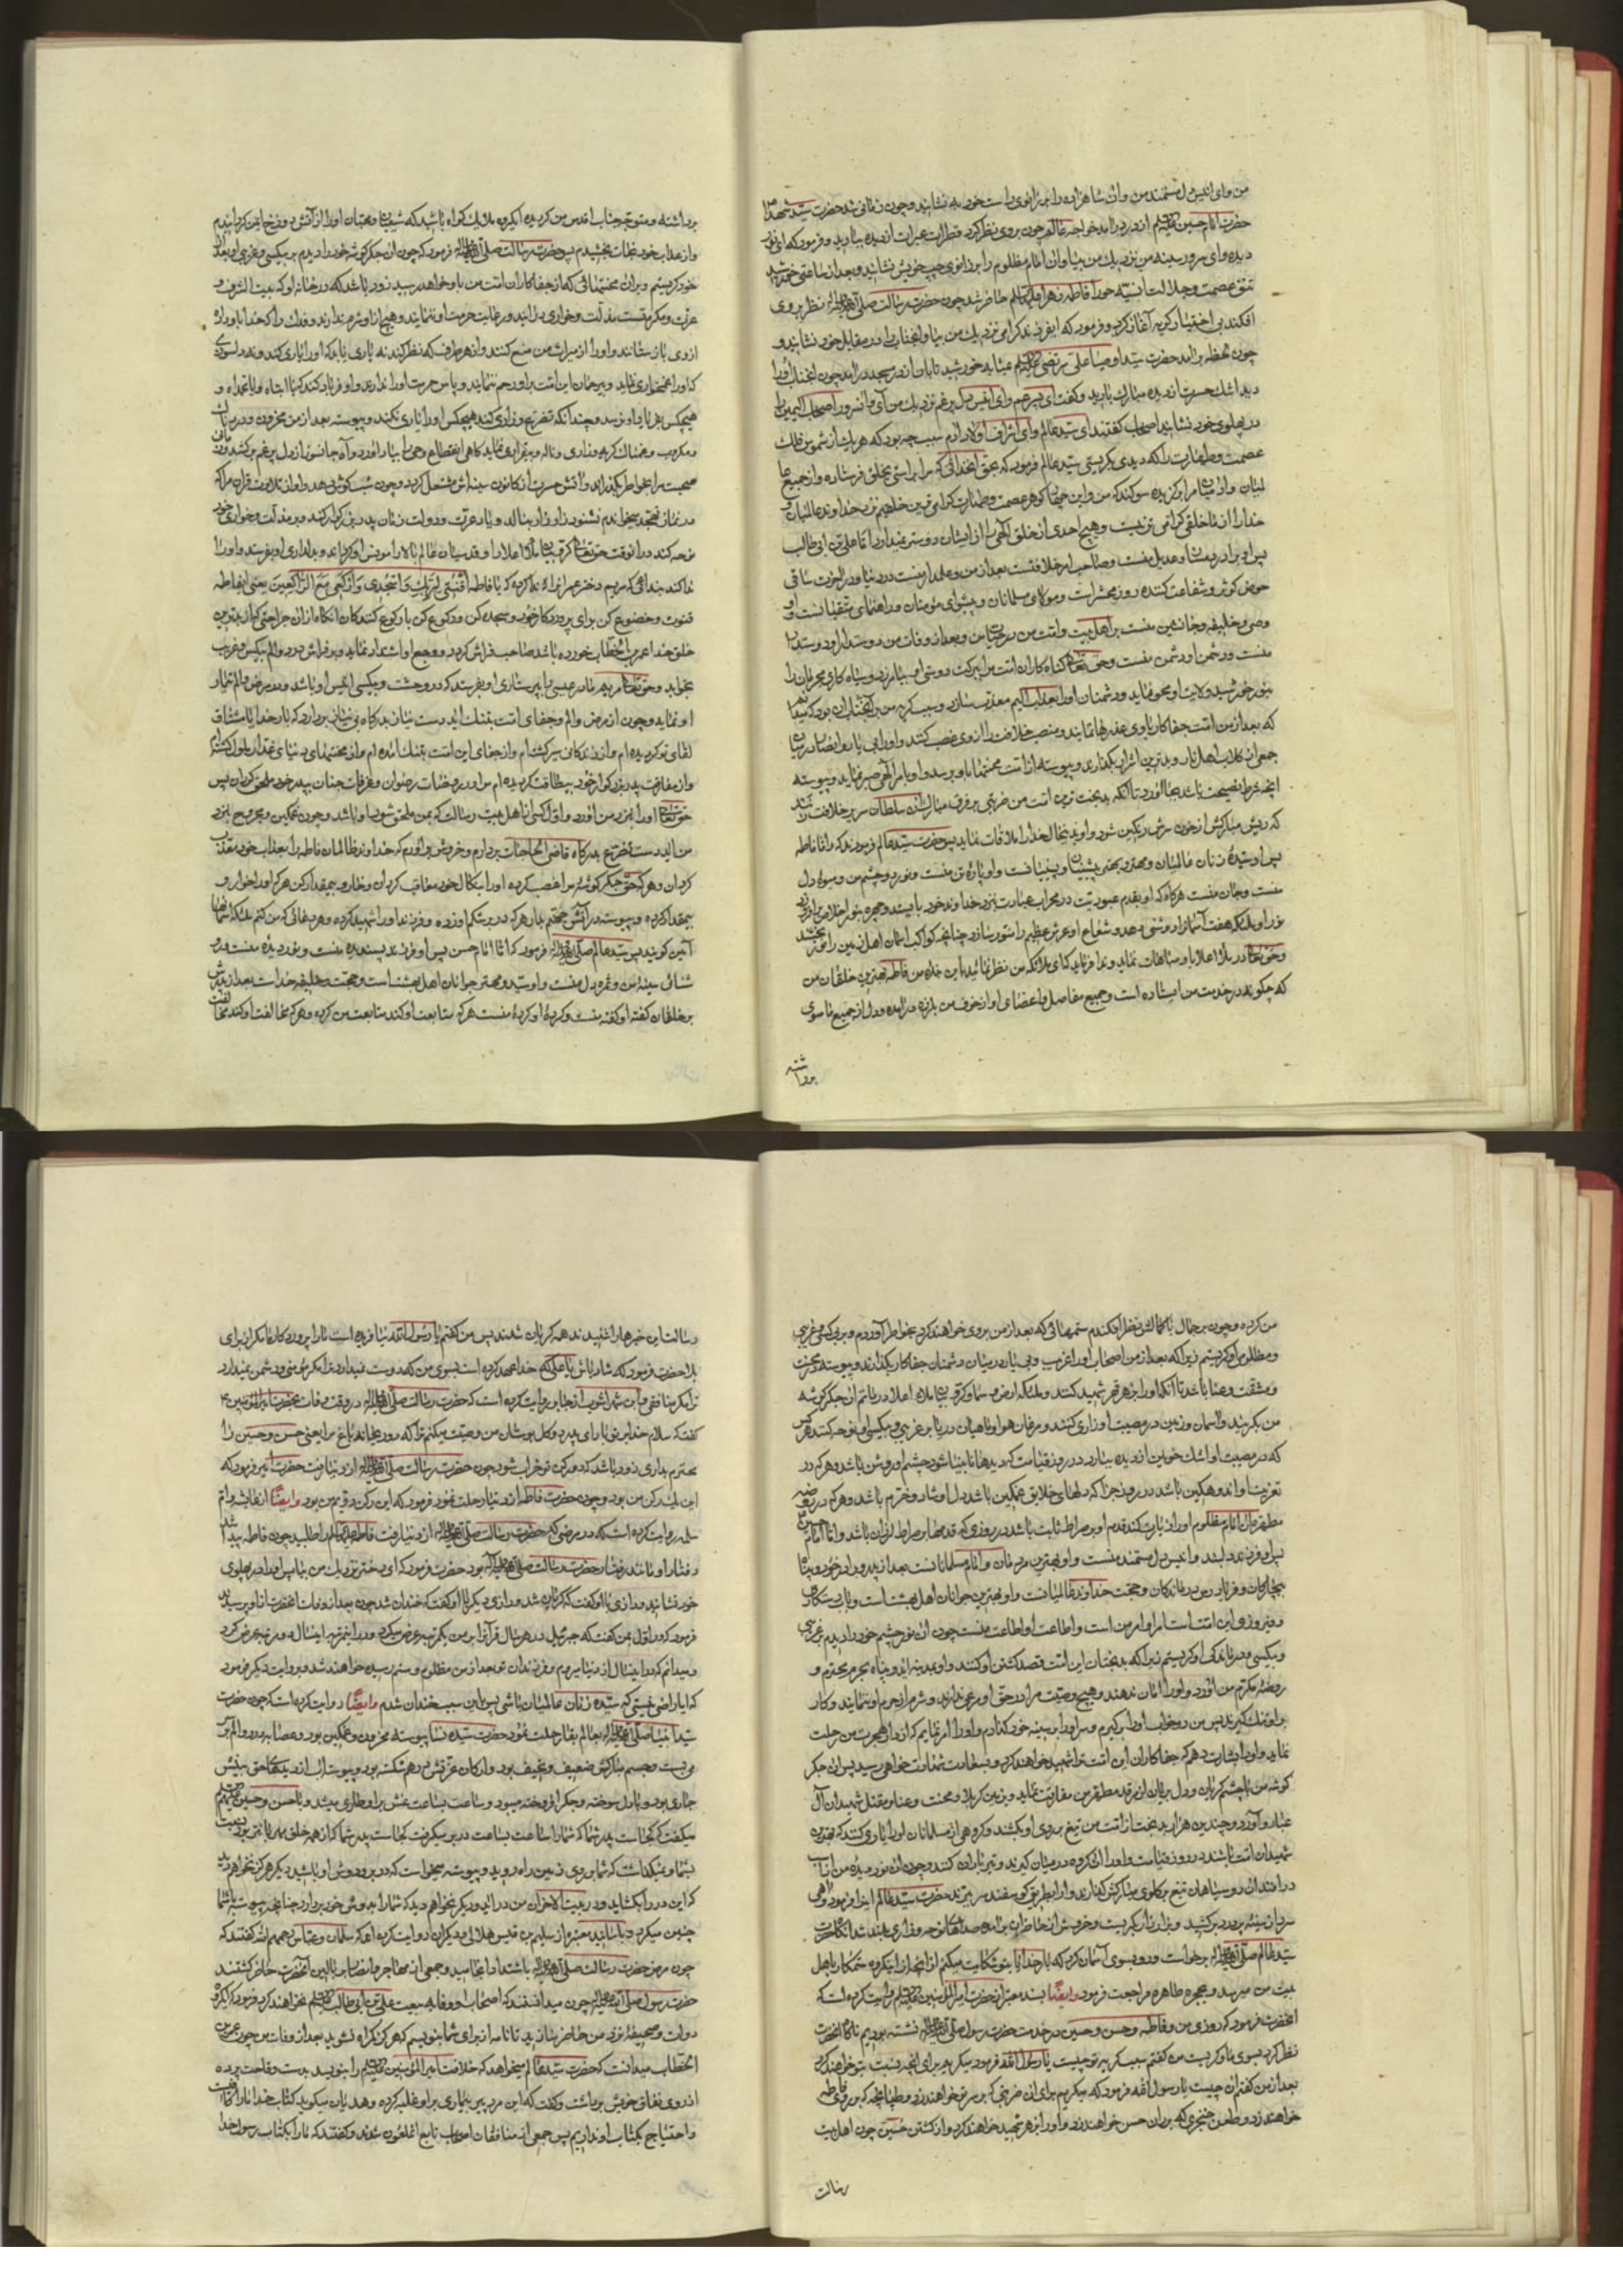 من وای انیس دل مستمند من وان شاهزاده را بر زانوی راست خود نشانید و چون زمانی شد حضرت سید شهدا
حضرت امام حسین از در درامد خواجه عالم چون بروی نظر کرد قطرات عبرات از دیده ببارید و فرمود که ای نور
دیده وای سرور سینه من نزدیک من بیا و ان امام مظلوم را بر زانوی چپ خویش نشانید و بعد از ساعتی خورشید
تتق عصمت و جلالت انسیه حورا فاطمه زهرا حاضر شد چون حضرت رسالت صلی الله علیه واله نظر بروی
افکند بی اختیار گریه آغاز کرد و فرمود که ای فرزند گرامی نزدیک من بیا و انجناب را در مقابل خود نشانید و
چون لحظه برامد حضرت سید اوصیا علی مرتضی مانند خورشید تابان از در مسجد درامد چون انجناب او را
دید اشک حسرت از دیده مبارک بارید و گفت ای وای انیس دل پر غم نزدیک من آی وانسرور اصحاب الیمین را
در پهلوی خود نشانید اصحاب گفتند ای سید عالم وای اشرف اولاد آدم سبب چه بود که هر یک از شموس فلک
عصمت و طهارت را که دیدی بگریستی سید عالم فرمود که بحق انخدائی که مرا براستی بخلق فرستاده و از جمیع
مرا برگزیده سوگند که من و این گوهر عصمت و طهارت گرامی ترین خلقیم نزد خداوند عالمیان و
خدا را از ما خلقی گرامی تر نیست و هیچ احدی از خلق الهی را از ایشان دوستر نمیدارم اما علی بن ابی طالب
پس او برادر منست و عدیل منست و صاحب امر خلافتست بعد از من و علمدار منست در دنیا و در اخرت ساقی
حوض کوثر و شفاعت کننده روز محشرست و مولای مسلمانان و پیشوای مؤمنان و راهنمای متقیانست و او
وصی و خلیفه و جانشین منست بر اهل بیت و امت من در حیات من و بعد از وفات من دوستدار او دوستدار
منست و دشمن او دشمن منست و حق تعالی گناه کاران امت مرا ببرکت دوستی او بیامرزد و سیاه کاری مجرمان را
بنور خورشید ولایت او محو نماید و دشمنان او را بعذاب الیم معذب سازد و سبب گریه من بر انجناب ان بود که
که بعد از من امت جفا کار با وی غدرها نمایند و منصب خلافت را از وی غصب کنند و او را بی یار و انصار در میان
جمعی از کلاب اهل نار و بدترین اشرار بگذارند و پیوسته از امت محنتها باو برسد و او بامر الهی صبر نماید و پیوسته
انچه شرط نصیحت باشد بجا اورد تا انکه بدبخت ترین امت من ضربتی بر فرق مبارک ان سلطان سریر خلافت زند
که ریش مبارکش از خون سرش رنگین شود و او بدینحال خدا را ملاقات نماید پس حضرت سید عالم فرمودند که و اما فاطمه
پس او سیده زنان عالمیان و مهتر و بهتر پیشینیان و پسینیانست و او پاره تن منست و نور دو چشم من و میوه دل
منست و جان منست هرگاه که او بقدم عبودیت در محراب عبادت نزد خداوند خود بایستد و چهره بنور اخلاص برافروزد
نور او بملائکه هفت آسمانها روشنی دهد و شعاع او عرش عظیم را منور سازد چنانچه کواکب اسمان اهل زمین را نور بخشد
وحق تعالی در ملأ اعلا باو مباهات نماید و ندا فرماید که ای ملائکه من نظر نمائید باین خاده من فاطمه بهترین خلقان من
که چگونه در خدمت من ایستاده است و جمیع مفاصل و اعضای او از خوف من بلرزه درآمده و دل از جمیع ماسوی
برداشته
برداشته و متوجه جناب اقدس من گردیده ای گروه ملائک گواه باشید که شیعیان و محبان او را از آتش دوزخ ایمن گردانیدم
و از عذاب خود نجات بخشیدم پس حضرت رسالت صلی الله علیه واله فرمود که چون ان جگر گوشه خود را دیدم بر بیکسی و غریبی او بعد از
خود گریستم و بران محنتهائی که از جفا کاران امت من باو خواهد رسید زود باشد که در خانه او که بیت الشرف و
عزت و مکرمتست مذلت و خواری درایند و رعایت حرمت او ننمایند و هیچ از او شرم ندارند و فدک را که خدا باو داد
از وی باز ستانند و او را از میراث من منع کنند و از هر طرف که نظر کند نه یاری یابد که او را یاری کند و نه دلسوزی
که او را غمخواری نماید و بیرحمان این امت بر او رحم ننمایند و پاس حرمت او را ندارند و او فریاد کند که یا ابتاه وا محمداه و
هیچکس بفریاد او نرسد و چندانکه تضرع و زاری کند هیچکس او را یاری نکند و پیوسته بعد از من محزون و
و مکروب و غمناک گریه و زاری و ناله و بیقراری نماید گاهی انقطاع وحی را بیاد اورد و آه جانسوز از دل پر غم برکشد و
صحبت مرا بخواطر بگذراند و آتش حسرت از کانون سینه اش مشتعل گردد و چون شب گوش دهد و اواز تلاوت قران مرا که
در نماز تهجد میخواندم نشنود زار زار بنالد و یاد عزت و دولت زمان پدر بزرگوار کند و بر مذلت و خواری خود
نوحه کند در انوقت حق تعالی کروبیان ملأ اعلا را و قدسیان عالم بالا را مونس او گرداند و بدلداری او بفرستد و او را
ندا کند ندائی که مریم دختر عمران را ندا کرده که یا فاطمه اقنتی لربک واسجدی وارکعی مع الراکعین یعنی ایفاطمه
قنوت و خضوع کن برای پروردگار خود و سجده کن و رکوع کن با رکوع کنندگان انگاه از ان جراحتی که از بدترین
خلق خدا عمر بن الخطاب خورده باشد صاحب فراش گردد و وجع او اشتداد نماید و بر فراش درد و الم بیکس و غریب
بخوابد و حق تعالی مریم مادر عیسی را بپرستاری او بفرستد که در وحشت و بیکسی انیس او باشد و در مرض و الم تیمار
او نماید و چون از مرض و الم و جفای امت بتنک اید دست نیاز بدرگاه بی نیاز بردارد که بار خدایا مشتاق
لقای تو گردیده ام و از زندگانی سیر گشته ام و از جفای این امت بتنک امده ام و از محنتهای دنیای غدار ملول گشته
و از مفارقت پدر بزرگوار خود بیطاقت گردیده ام مرا در روضات رضوان و غرفات جنان بپدر خود ملحق گردان پس
حق تعالی او را بنزد من اورد و اول کسی از اهل بیت رسالت که بمن ملحق شود او باشد و چون غمگین و مجروح بنزد
من اید دست تضرع بدرگاه قاضی الحاجات بردارم و خروش براورم که خداوندا ظالمان فاطمه را بعذاب خود معذب
گردان و هر که حق جگر گوشه مرا غصب کرده او را بنکال خود معاقب گردان و خوار و بیمقدار کن هر که او را خوار و
بیمقدار کرده و پیوسته در آتش جهنم بدار هر که در بر شکم او زده و فرزند او را شهید کرده و هر دعائی که من کنم ملئکه آسمانها
آمین گویند پس سید عالم صلی الله علیه واله فرمود که اما امام حسن پس او فرزند پسندیده منست و نور دیده منست و
سینه من و ثمره دل منست و او سید و مهتر جوانان اهل بهشتست و حجت و خلیفه خداست بعد از پدرش
بر خلقان گفته او گفته منست و کرده او کرده منست هر که متابعت او کند متابعت من کرده و هر که مخالفت او کند مخالفت
من کرده و چون بر جمال با کمالش نظر افکندم ستمهائی که بعد از من بروی خواهند کرد بخواطر آوردم و بر بیکسی و غریبی
و مظلومی او گریستم زیرا که بعد از من اصحاب او را غریب و بی یار در میان دشمنان جفا کار بگذارند و پیوسته در محنت
و مشقت و عنا باشد تا آنکه او را بزهر قهر شهید کنند و ملئکه ارض و سما و کروبیان ملاء اعلا در ماتم ان جگر گوشه
من بگریند و اسمان و زمین در مصیبت او زاری کنند و مرغان هوا و ماهیان دریا بر غریبی و بیکسی او نوحه کنند هر کس
که در مصیبت او اشک خونین از دیده ببارد در روز قیامت که دیدها نابینا شود چشم او روشن باشد و هر که در
تعزیت او اندوهگین باشد در روز جزا که دلهای خلایق غمگین باشد دل او شاد و خرم باشد و هر که در روضه
مطهر ان امام مظلوم او را زیارت کند قدم او بر صراط ثابت باشد در روزی که قدمها بر صراط لرزان باشد و اما امام حسین
پس او فرزند دلبند و انیس دل مستمند منست و او بهترین مردمان و امام مسلمانانست بعد از پدر و برادر خود و پناه
بیچارگان و فریادرس درماندگان و حجت خداوند عالمیانست و او بهترین جوانان اهل بهشت است و باب رستگاری
و فیروزی این امت است امر او امر من است و اطاعت او اطاعت منست چون ان نور چشم خود را دیدم بر غریبی
و بیکسی و درماندگی او گریستم زیرا که بدبختان این امت قصد کشتن او کنند و او بمدینه اید و پناه بحرم محترم و
روضه مکرم من آورد و او را امان ندهند و هیچ وصیت مرا در حق او مرعی ندارند و شرم از حرم او ننمایند و کار
بر او تنک گیرند پس من در خواب او را در بر گیرم و سر او را بر سینه خود گذارم و او را امر نمایم که از دار الهجرت من رحلت
نماید و او را بشارت دهم که جفا کاران این امت تو را شهید خواهند کرد و بسعادت شهادت خواهی رسید پس ان جگر
گوشه من با چشم گریان و دل بریان از مرقد مطهر من مفارقت نماید و بزمین کربلا و محنت و عنا و مقتل شهیدان آل
عبا رو آورد و چندین هزار بدبخت از امت من تیغ بروی او بکشند و گروهی از مسلمانان او را یاری کنند که بهترین
شهیدان امت باشند در روز قیامت و او را ان گروه در میان گیرند و تیر باران کنند و چون ان نور دیده من از پا
درافتد ان روسیاهان تیغ بر گلوی مبارکش گذارند و او را بطریق گوسفند سر ببرند حضرت سید عالم اینرا فرمود و آهی
سرد از سینه پر درد برکشید و زار زار بگریست و خروش از حاضران برامد و صداهای نوحه و زاری بلند شد انگاه حضرت
سید عالم صلی الله علیه واله برخواست و رو بسوی آسمان کرد که بار خدایا بتو شکایت میکنم از انچه از این گروه ستمکار باهل
بیت من میرسد و بحجره طاهره مراجعت فرمود وایضا بسند معتبر از حضرت امیر المؤمنین روایت کرده است که
انحضرت فرمود که روزی من و فاطمه و حسن و حسین در خدمت حضرت رسول صلی الله علیه واله نشسته بودیم ناگاه انحضرت
نظر کرد بسوی ما و گریست من گفتم سبب گریه تو چیست یا رسول الله فرمود میگریم برای انچه نسبت بتو خواهند کرد
بعد از من گفتم ان چیست یا رسول الله فرمود که میگریم برای ان ضربتی که بر سر تو خواهند زد و طپانچه که بر روی فاطمه
خواهند زد و طعن خنجری که بر ران حسن خواهند زد و او را بزهر شهید خواهند کرد و از کشتن حسین چون اهل بیت
رسالت
رسالت این خبرها را شنیدند همه گریان شدند پس من گفتم یا رسول الله نیافریده است ما را پروردگار ما مگر از برای
بلا حضرت فرمود که شاد باش یا علی که خدا عهد کرده است بسوی من که دوست نمیدارد ترا مگر مؤمنی و دشمن نمیدارد
ترا مگر منافقی و ابن شهر اشوب از جابر روایت کرده است که حضرت رسالت صلی الله علیه واله در وقت وفات بحضرت امیر المؤمنین
گفت که سلام خدا بر تو باد ای پدر دو گل بوستان من وصیت میکنم ترا که دو ریحانه باغ مرا یعنی حسن و حسین را
محترم بداری زود باشد که دو رکن تو خراب شود چون حضرت رسالت صلی الله علیه واله از دنیا رفت حضرت امیر فرمود که
این یک رکن من بود و چون حضرت فاطمه از دنیا رحلت نمود فرمود که این رکن دویم من بود وایضا از عایشه و ام
سلمه روایت کرده است که در مرضی که حضرت رسالت صلی الله علیه واله از دنیا رفت فاطمه را طلبید چون فاطمه پیدا شد
رفتار او مانند رفتار حضرت رسالت صلی الله علیه واله بود حضرت فرمود که ای دختر نزدیک من بیا پس او را در پهلوی
خود نشانید و رازی با او گفت که گریان شد و رازی دیگر با او گفت که خندان شد چون بعد از وفات انحضرت از او پرسیدند
فرمود که در اول بمن گفت که جبرئیل در هر سال قرآنرا بر من یکمرتبه عرض میکرد و در اینمرتبه امسال دو مرتبه عرض کرد
و میدانم که در اینسال از دنیا میروم و فرزندان تو بعد از من مظلوم و ستم رسیده خواهند شد و بروایت دیگر فرمود
که ایا راضی نیستی که سیده زنان عالمیان باشی پس باین سبب خندان شدم وایضا روایت کرده است که چون حضرت
سید انبیا صلی الله علیه واله بعالم بقا رحلت نمود حضرت سیده نسا پیوسته محزون و غمگین بود و عصابه درد و الم بر
سر می بست و جسم مبارکش ضعیف و نحیف بود و ارکان عزتش درهم شکسته بود و پیوسته اب از دیدهای حق بینش
جاری بود و با دل سوخته و جگر افروخته میبود و ساعت بساعت غش بر او طاری میشد و با حسن و حسین
میگفت که کجاست پدر شما که شما را ساعت بساعت در بر میگرفت کجاست پدر شما که از همه خلق مهربانتر بود نسبت
بشما و نمیگذاشت که شما بر روی زمین راه روید و پیوسته میخواست که در بر و دوش او باشید دیگر هرگز نخواهم دید
که این در را بگشاید و در بیت الاحزان من دراید و دیگر نخواهم دید که شما را بدوش خود بردارد چنانچه پیوسته با شما
چنین میکرد و باسانید معتبر از سلیم بن قیس هلالی و دیگران روایت کرده اند که سلمان و عباس رحمهم الله گفتند که
چون مرض حضرت رسالت صلی الله علیه واله باشتداد انجامید و جمعی از مهاجر و انصار ببالین آنحضرت حاضر گشتند
حضرت رسول صلی الله علیه واله چون میدانستند که اصحاب او وفا به بیعت علی بن ابی طالب نخواهند کرد فرمود که ای گروه
دوات و صحیفه نزد من حاضر سازید تا نامه از برای شما بنویسم که هرگز گمراه نشوید بعد از وفات من چون عمر بن
الخطاب میدانست که حضرت سید عالم میخواهد که خلافت امیر المؤمنین را بنویسد دست وقاحت پرده
از روی نفاق خویش برداشت و گفت که این مرد پیر بیماری بر او غلبه کرده و هذیان میگوید کتاب خدا ما را کافیست
و احتیاج بکتاب او نداریم پس جمعی از منافقان اصحاب تابع آنملعون شدند و گفتند که ما را بکتاب رسول خدا